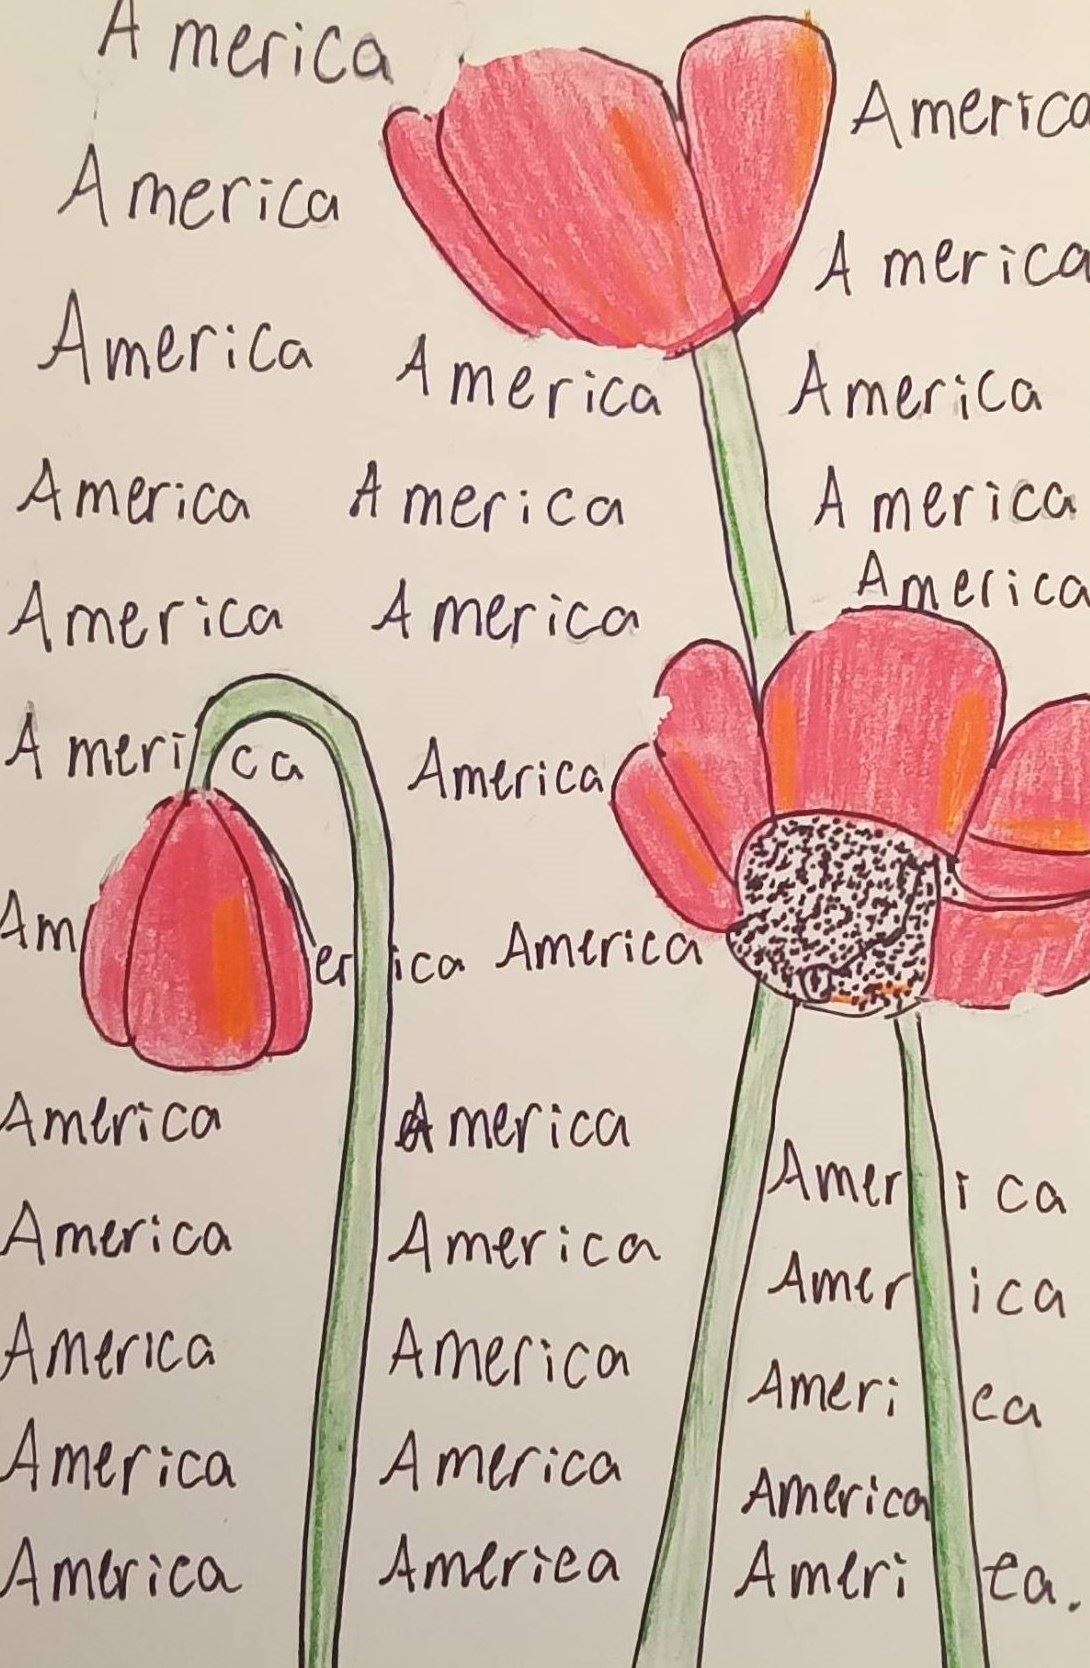 America
America
America
America
America America America
America America America
America
America America
Ameri ca America
Am er ica America
America America Amer i ca
America America Amer ica
America America Ameri ca
America America America
America America Ameri ca.